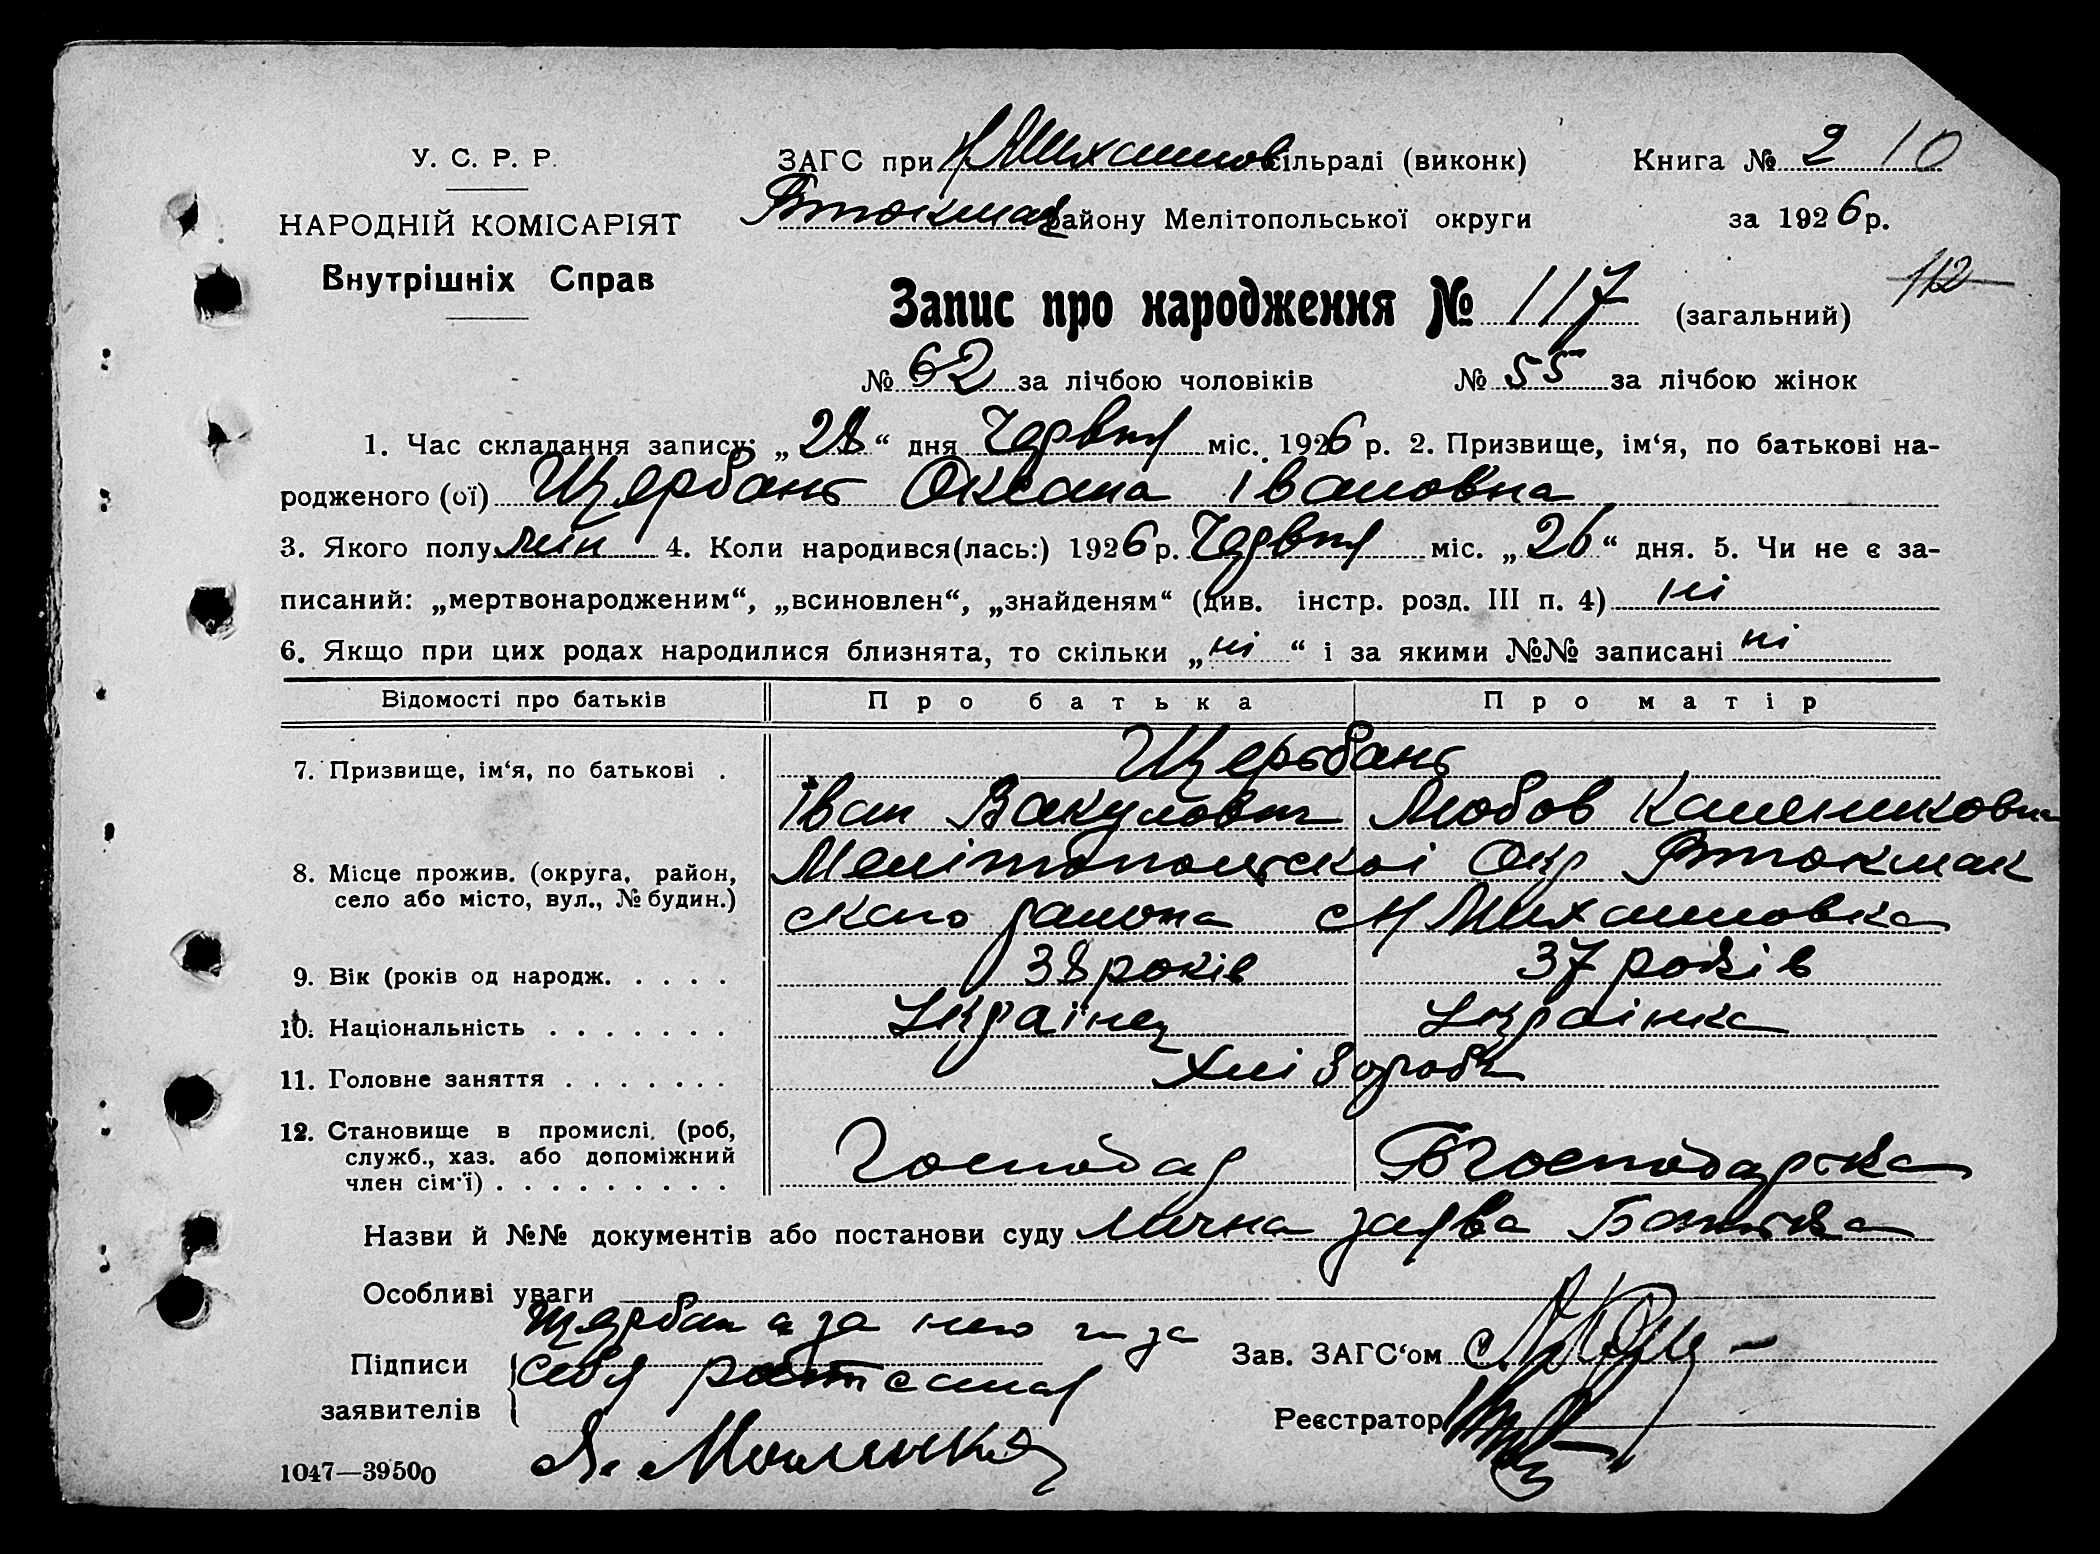 У. С. Р. Р.
НАРОДНІЙ КОМІСАРІЯТ
Внутрішніх Справ
ЗАГС при Н Михайлов сільраді (виконк)
Втокмак району Мелітопольської округи
Книга № 2 10
за 1926 р.
112
Запис про народження № 117 (загальний)
№ 62 за лічбою чоловіків № 55 за лічбою жінок
1. Час складання запису: „28“ дня Червня міс. 1926 р. 2. Призвище, ім‘я, по батькові на-
родженого (ої) Щербань Оксана Івановна
3. Якого полу жін 4. Коли народився(лась:) 1926 р. Червня міс. „26“ дня. 5. Чи не є за-
писаний: „мертвонародженим“, „всиновлен“, „знайденям“ (див. інстр. розд. III п. 4) ні
6. Якщо при цих родах народилися близнята, то скільки „ні“ і за якими №№ записані ні
Відомості про батьків Про батька Про матір
7. Призвище, ім‘я, по батькові . Щербань
Іван Вакулович Любов Калениковна
8. Місце прожив. (округа, район, село або місто, вул., № будин.) Мелітопольскоі Окр Втокмак
ского района с Н Михайловка
9. Вік (років од народж. . . . . 38 років 37 років
10. Національність . . . . . . . Українец Українка
11. Головне заняття . . . . . . . Хлібороби
12. Становище в промислі. (роб, служб., хаз. або допоміжний член сім‘ї) . . . . . . . . . Господар Господарка
Назви й №№ документів або постанови суду Лична заява Батька
Особливі уваги
Підписи заявителів Щербан а за него и за
себя росписался
Зав. ЗАГС‘ом
Реєстратор
1047—39500